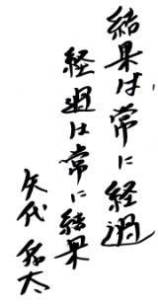 結果は常に経過
経過は常に結果
矢代 秀太